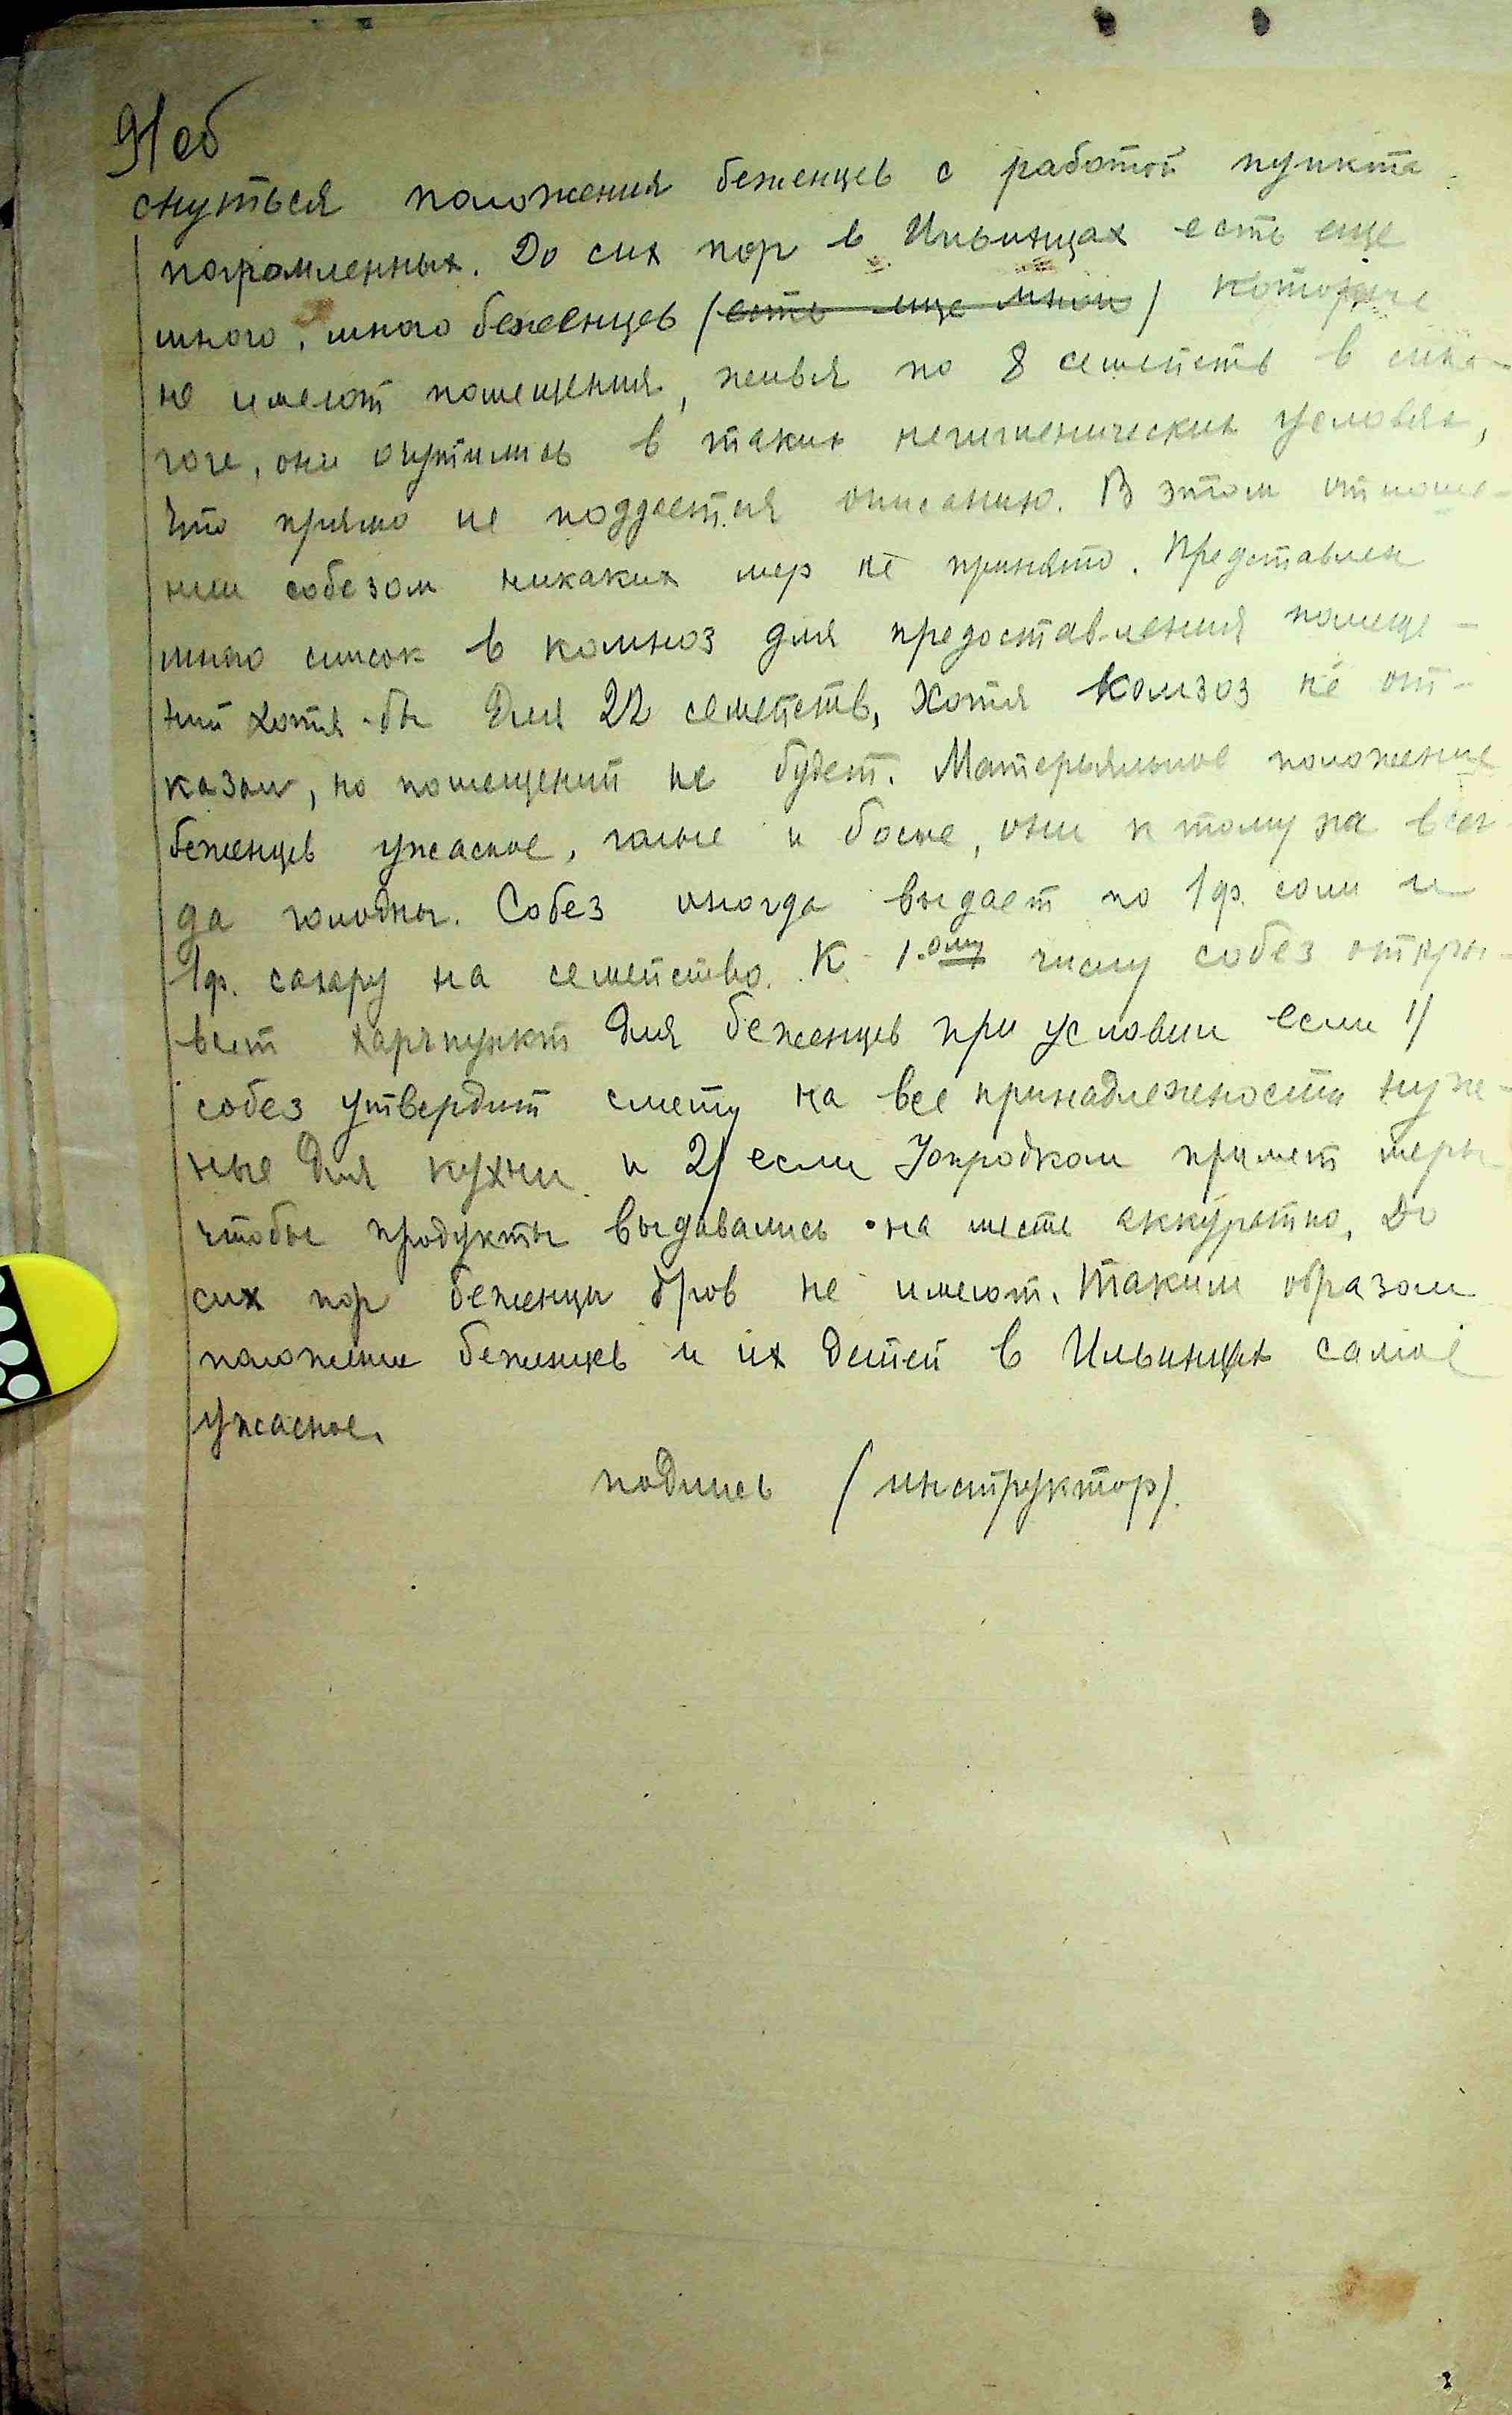 91об
снуться положения беженцев с работой пункта
погромленных. До сих пор в Ильинцах есть еще
много, много беженцев (есть еще много) которые
не имеют помещения, живья по 8 семейств в сина-
гоге, они очутились в таких негигиенических условях,
что прямо не поддается описанию. В этом отноше-
нии собезом никаких мер не принято. Представлен
мною список в комхоз для предоставления помеще-
ний хотя-бы для 22 семейств, Хотя Комхоз не от-
казал, но помещений не будет. Матерьяльное положение
беженцев ужасное, голые и босые, они к тому же всег-
да голодны. Собез иногда выдает по 1ф. соли и
1ф. сахару на семейство. К 1.ому числу собез откры-
вает харчпункт для беженцев при условии если 1)
собез утвердит смету на все принадлежности нуж-
ные для кухни и 2) если Упродком примет меры
чтобы продукты выдавались на месте аккуратно. До
сих пор беженцы дров не имеют. Таким образом
положение беженцев и их детей в Ильинцах самое
ужасное.
подпись (инструктор).